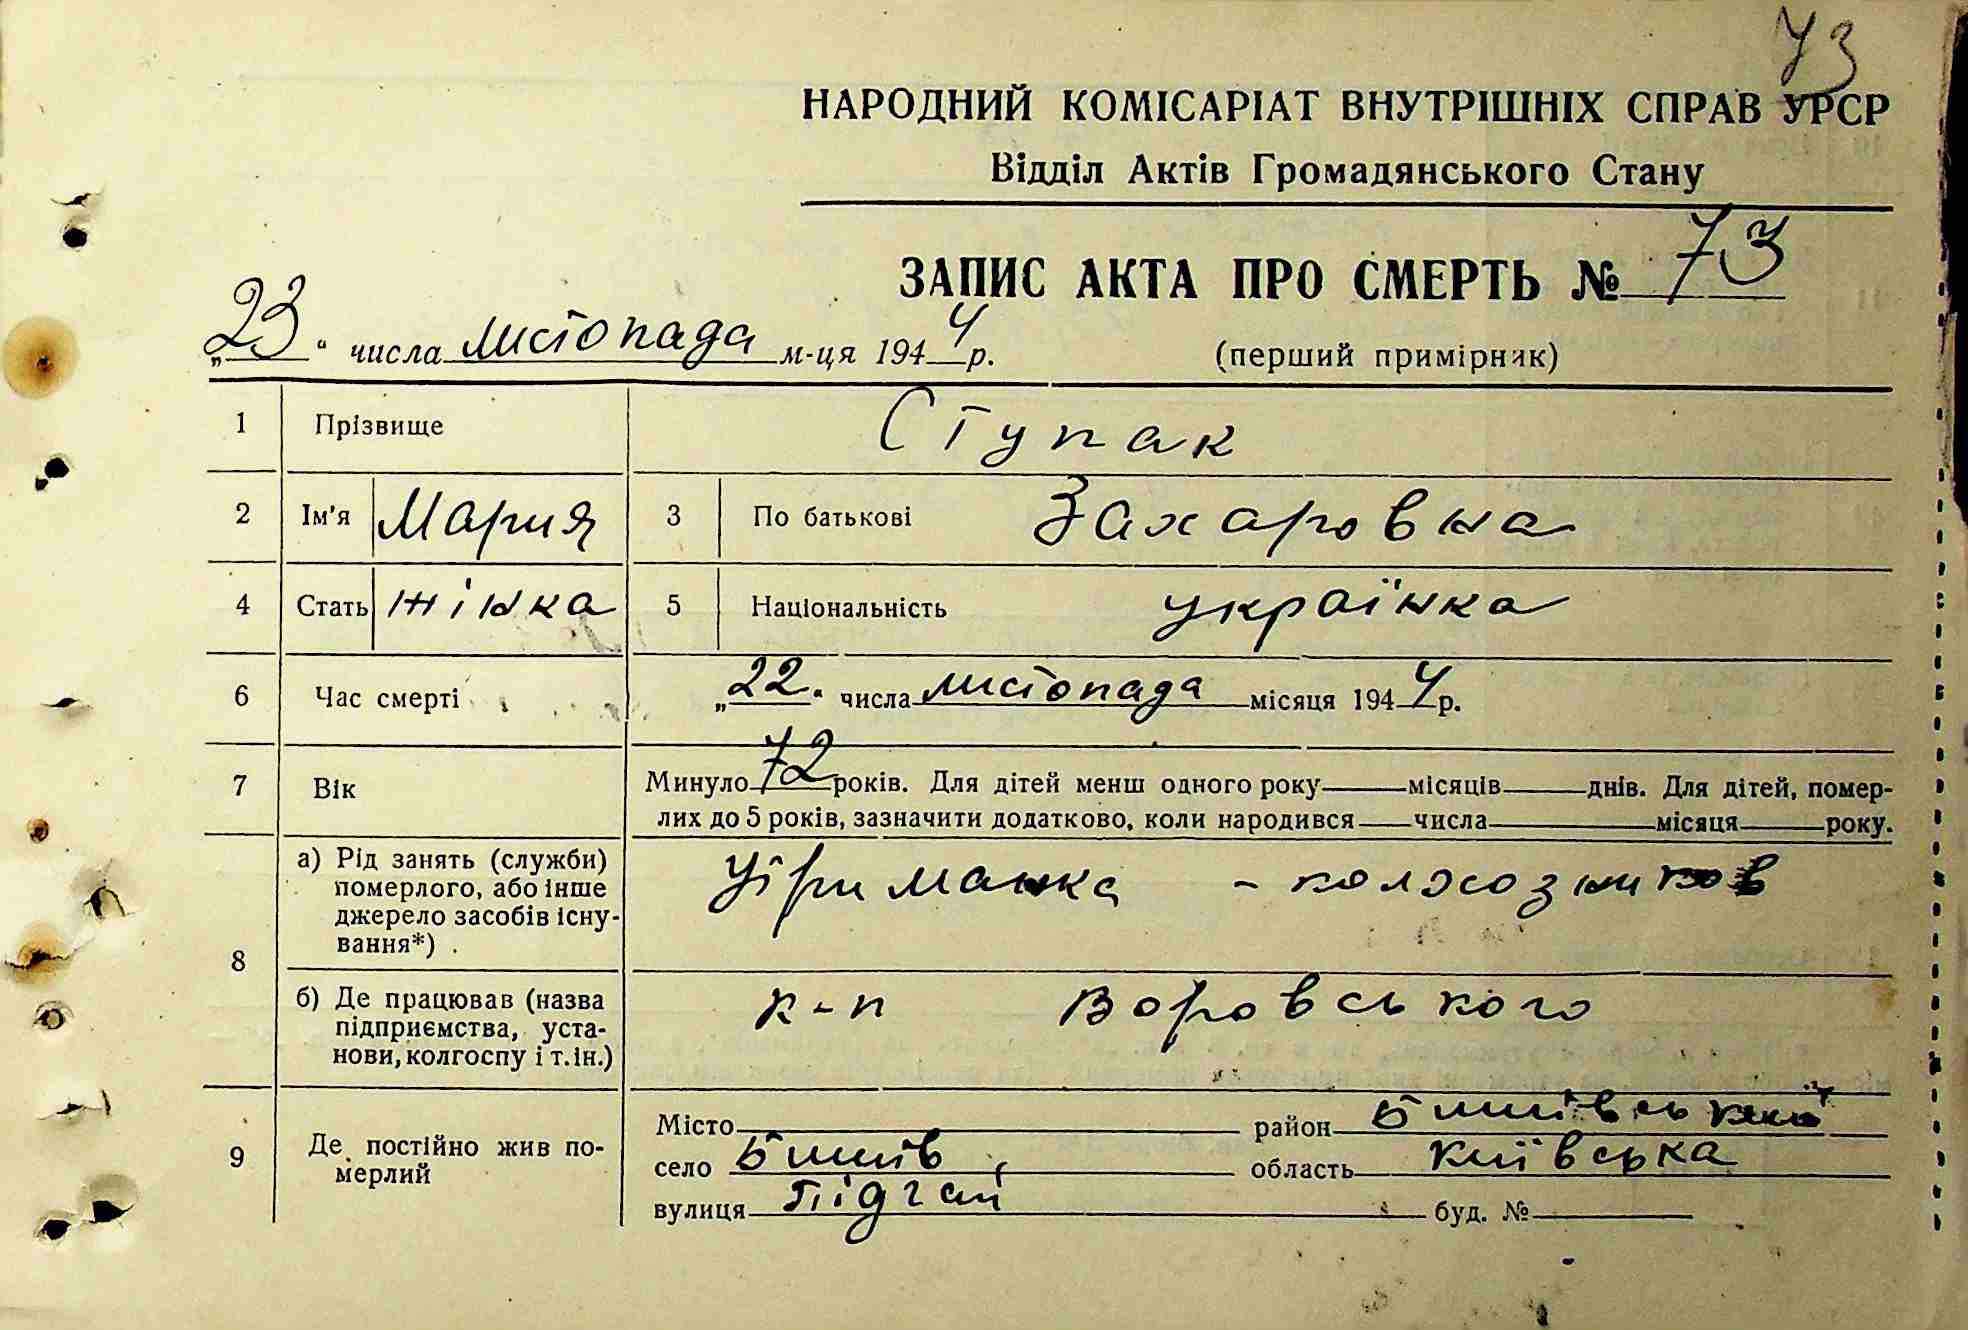 73
НАРОДНИЙ КОМІСАРІАТ ВНУТРІШНІХ СПРАВ УРСР
Відділ Актів Громадянського Стану
ЗАПИС АКТА ПРО СМЕРТЬ № 73
„23“ числа листопада м-ця 1944 р. (перший примірник)
1 Прізвище Ступак
2 Ім'я Мария 3 По батькові Захаровна
4 Стать жінка 5 Національність українка
6 Час смерті „22“ числа листопада місяця 1944 р.
7 Вік Минуло 72 років. Для дітей менш одного року — місяців — днів. Для дітей, помер-
лих до 5 років, зазначити додатково, коли народився — числа — місяця — року.
8 а) Рід занять (служби)
померлого, або інше
джерело засобів існу-
вання*) .
Утриманка - колхозников
б) Де працював (назва
підприємства, уста-
нови, колгоспу і т.ін.)
к-п Воровського
9 Де постійно жив по-
мерлий
Місто район Бишівський
село Бишів, область Київська
вулиця Підгай буд. №